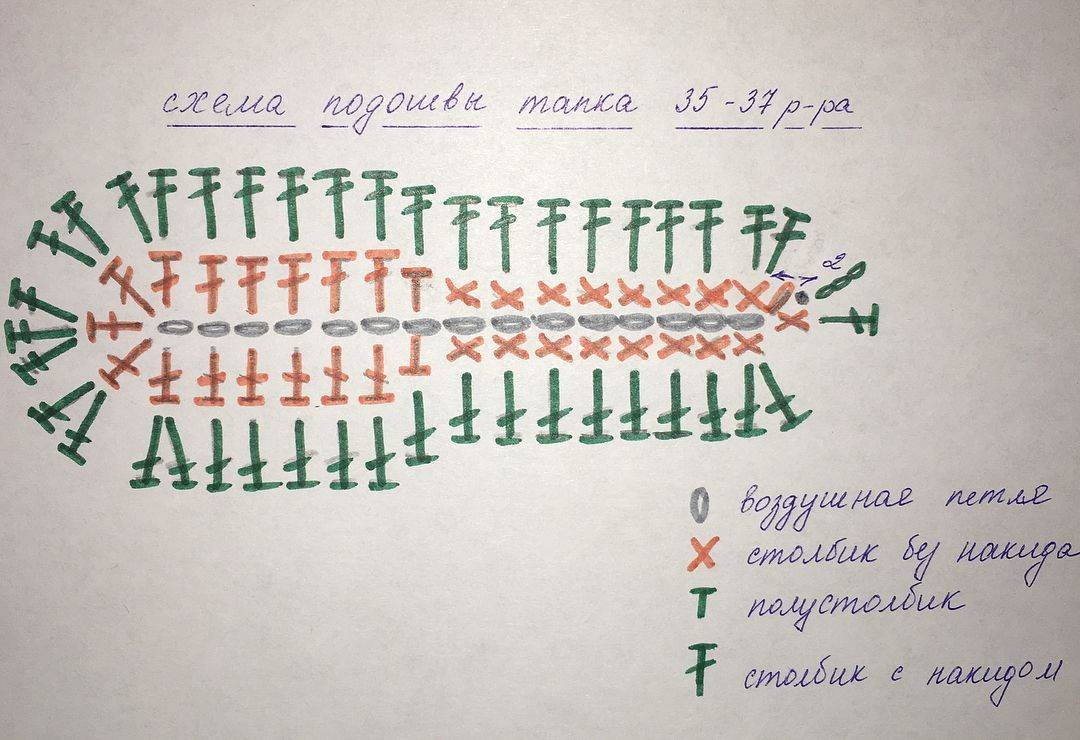 схема подошвы тапка 35-37 р-ра
1 2
воздушная петля
столбик бу накида
полустолбик
столбик с накидом